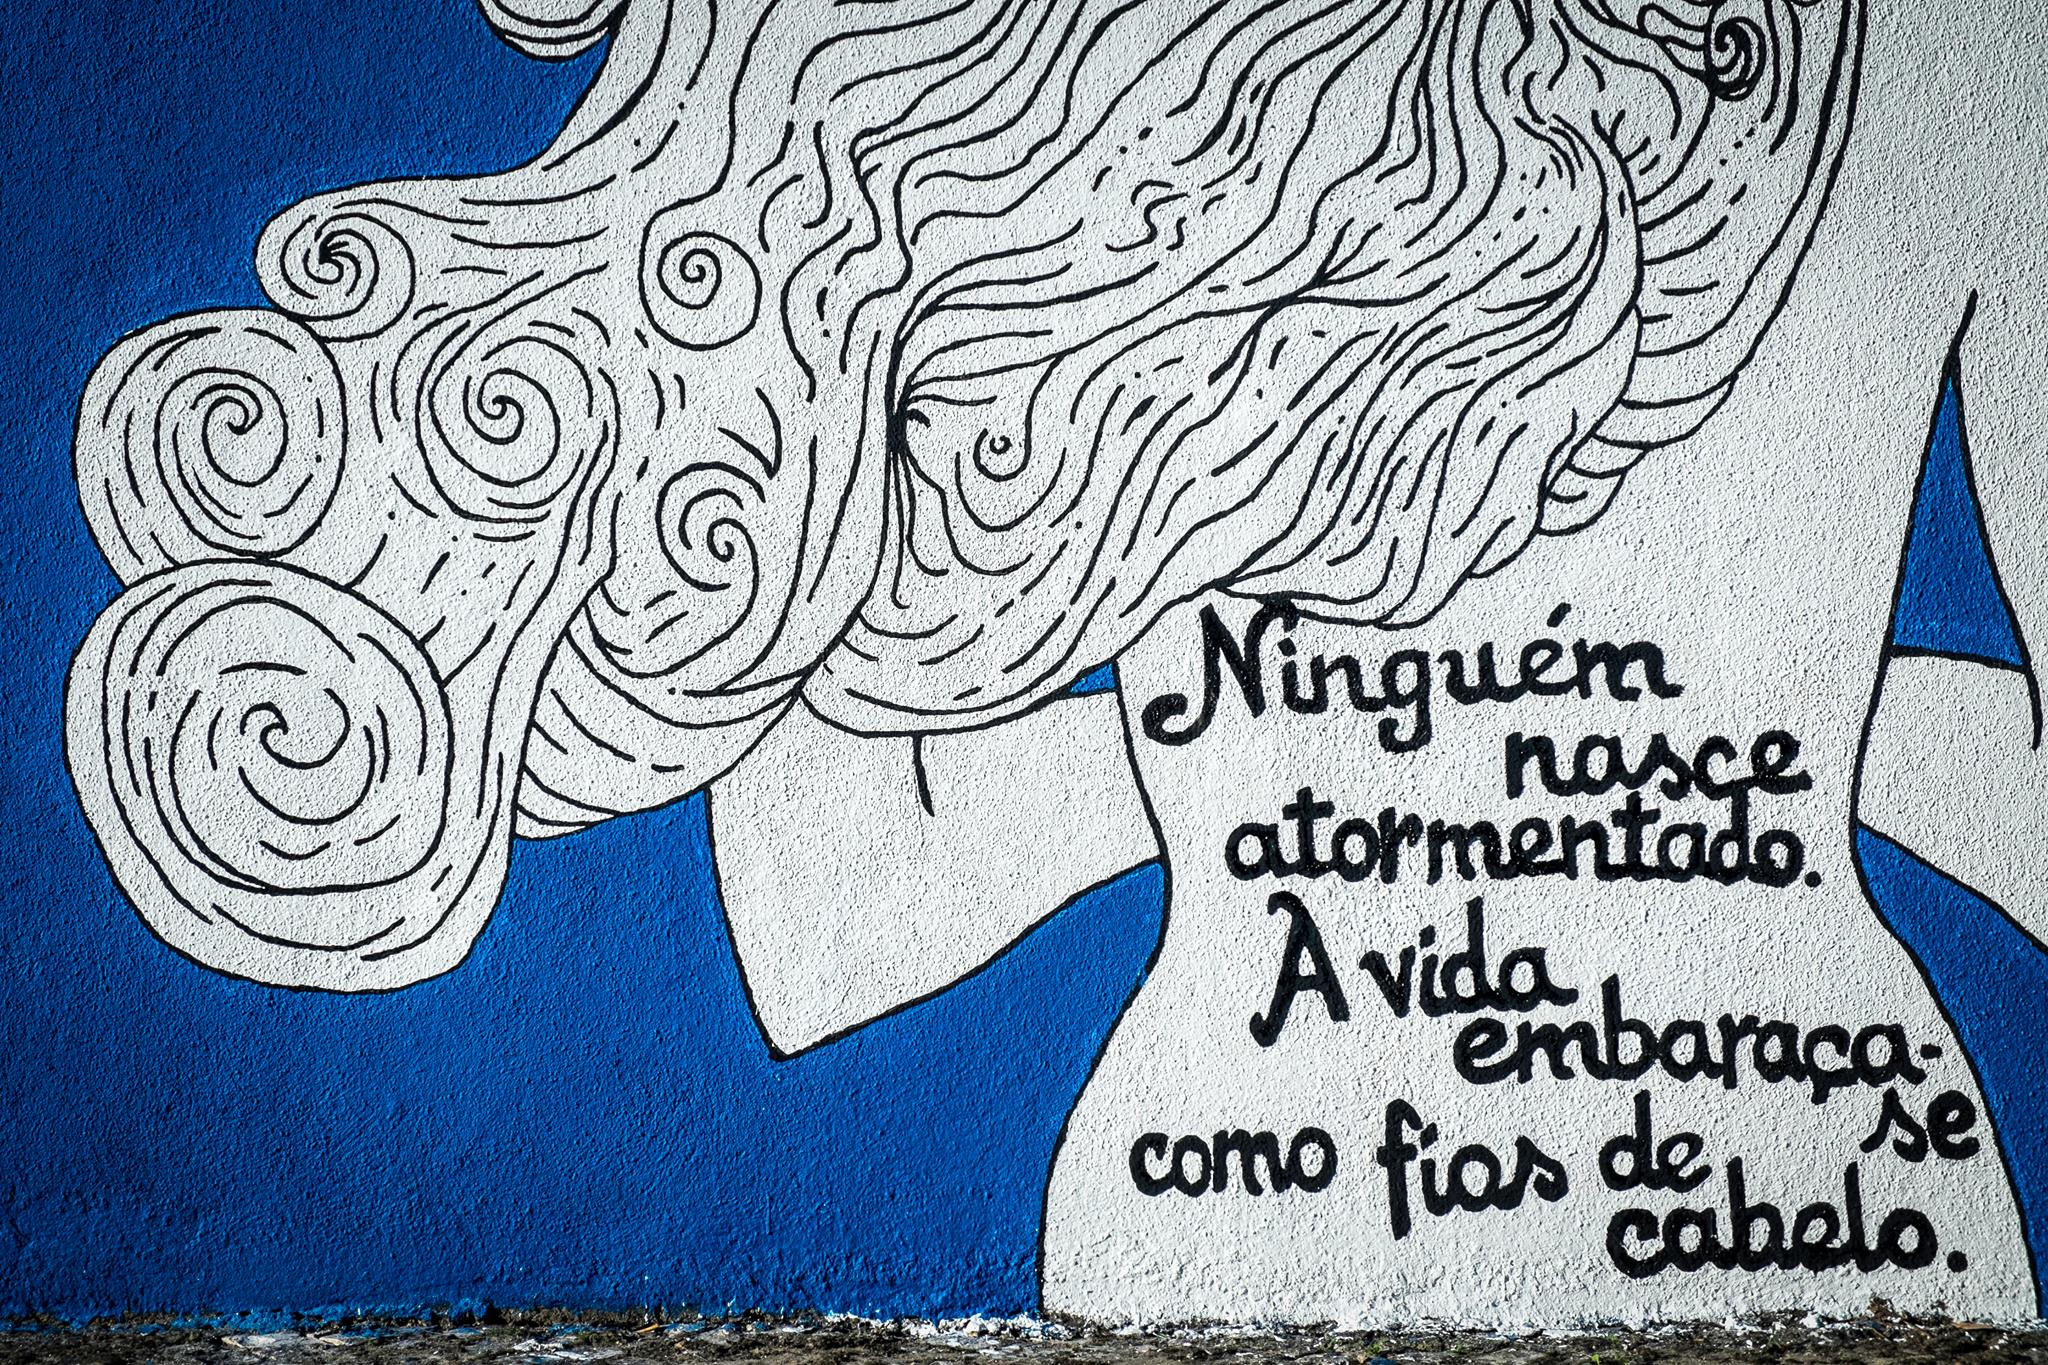 Ninguém
nasce
atormentado.
A vida
embaraça-
se
como fios de
cabelo.